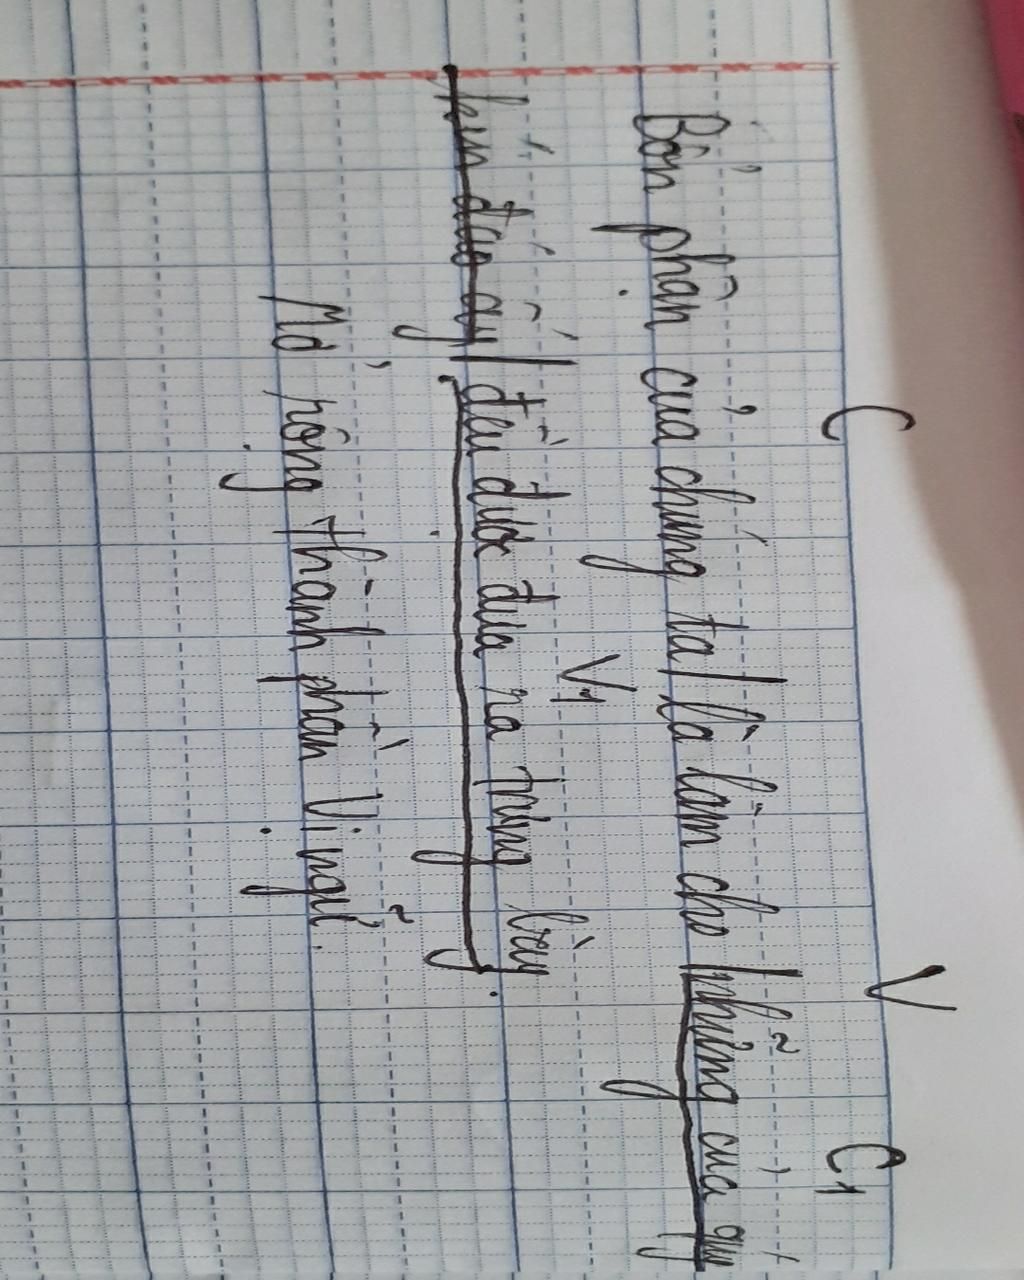 C V C1
Bổn phận của chúng ta / là làm cho / những của quý
V1
kín đáo ấy / đều được đưa ra trưng bày.
Mở rộng thành phần Vị ngữ.